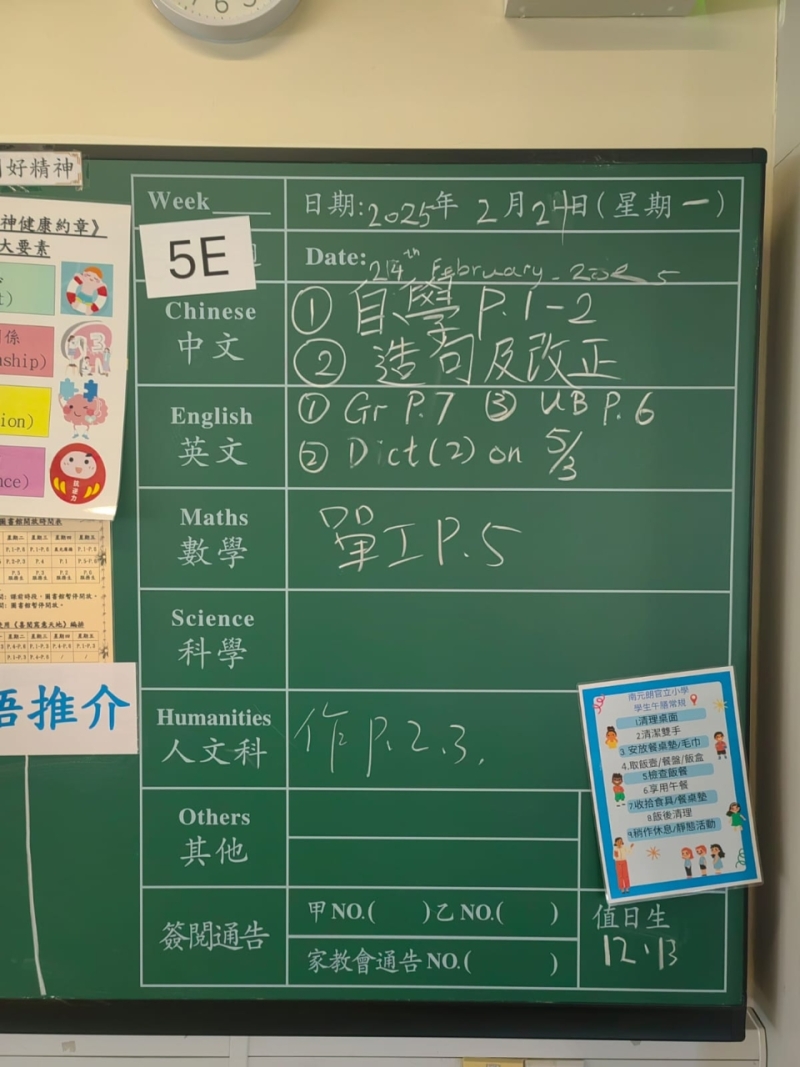 好精神
神健康約章》
大要素
係
nship)
ion)
nce)
圖書館開放時間表
星期二 星期三 星期四 星期五
語推介
Week____
日期:2025年 2月24日(星期一)
5E
Date: 24th February 2025
Chinese
中文
① 自學 P.1-2
② 造句及改正
English
英文
① Gr P.7 ③ UB P.6
② Dict(2) on 5/3
Maths
數學
單工 P.5
Science
科學
Humanities
人文科
作 P.2.3.
Others
其他
簽閱通告
甲NO.( )乙NO.( )
家教會通告NO.( )
值日生
12、13
南元朗官立小學
學生午膳常規
1.清理桌面
2.清潔雙手
3.安放餐桌墊/毛巾
4.取飯壺/餐盤/飯盒
5.檢查飯餐
6.享用午餐
7.收拾食具/餐桌墊
8.飯後清理
9.稍作休息/靜態活動